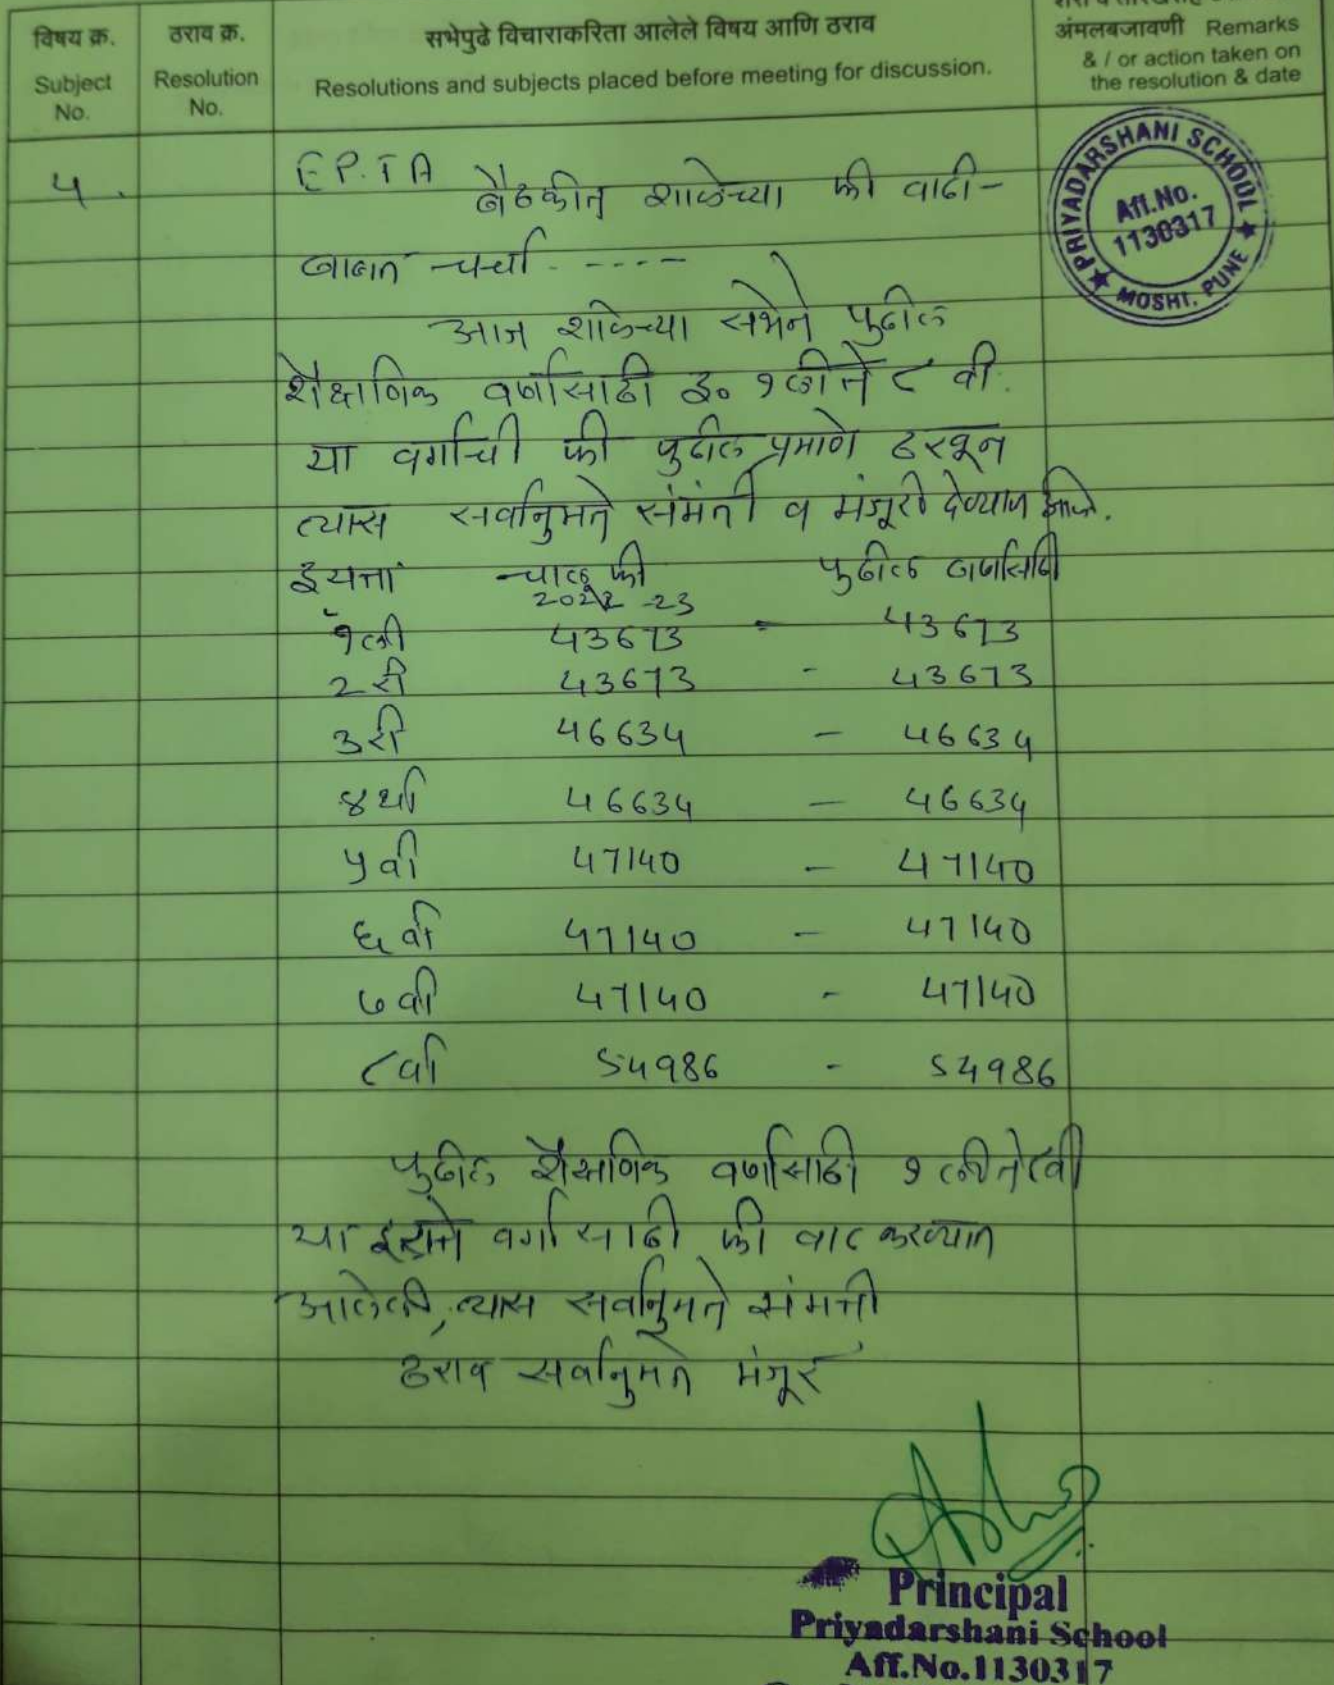 विषय क्र.
Subject
No.
ठराव क्र.
Resolution
No.
सभेपुढे विचाराकरिता आलेले विषय आणि ठराव
Resolutions and subjects placed before meeting for discussion.
अंमलबजावणी Remarks
& / or action taken on
the resolution & date
PRIYADARSHANI SCHOOL
Afl.No.
1130317
MOSHI. PUNE
५.
E P. T A बैठकीत शाळेच्या फी वाढी-
बाबत चर्चा - ----
आज शाळेच्या सभेने पुढील
शैक्षणिक वर्षासाठी इ० १ली ते ८ वी.
या वर्गाची फी पुढील प्रमाणे ठरवून
त्यास सर्वानुमते संमंती व मंजूरी देण्यात आले.
इयत्ता चालू फी पुढील वर्षासाठी
2022-23
१ली 43673 - 43673
2 री 43673 - 43673
3री 46634 - 46634
४थी 46634 - 46634
५वी 47140 - 47140
६वी 47140 - 47140
७वी 47140 - 47140
८वी 54986 - 54986
पुढील शैक्षणिक वर्षासाठी १ ली ते ८वी
या वर्गासाठी फी वाढ करण्यात
आलेली, त्यास सर्वानुमते संमती
ठराव सर्वानुमते मंजूर
Principal
Priyadarshani School
Aff.No.1130317